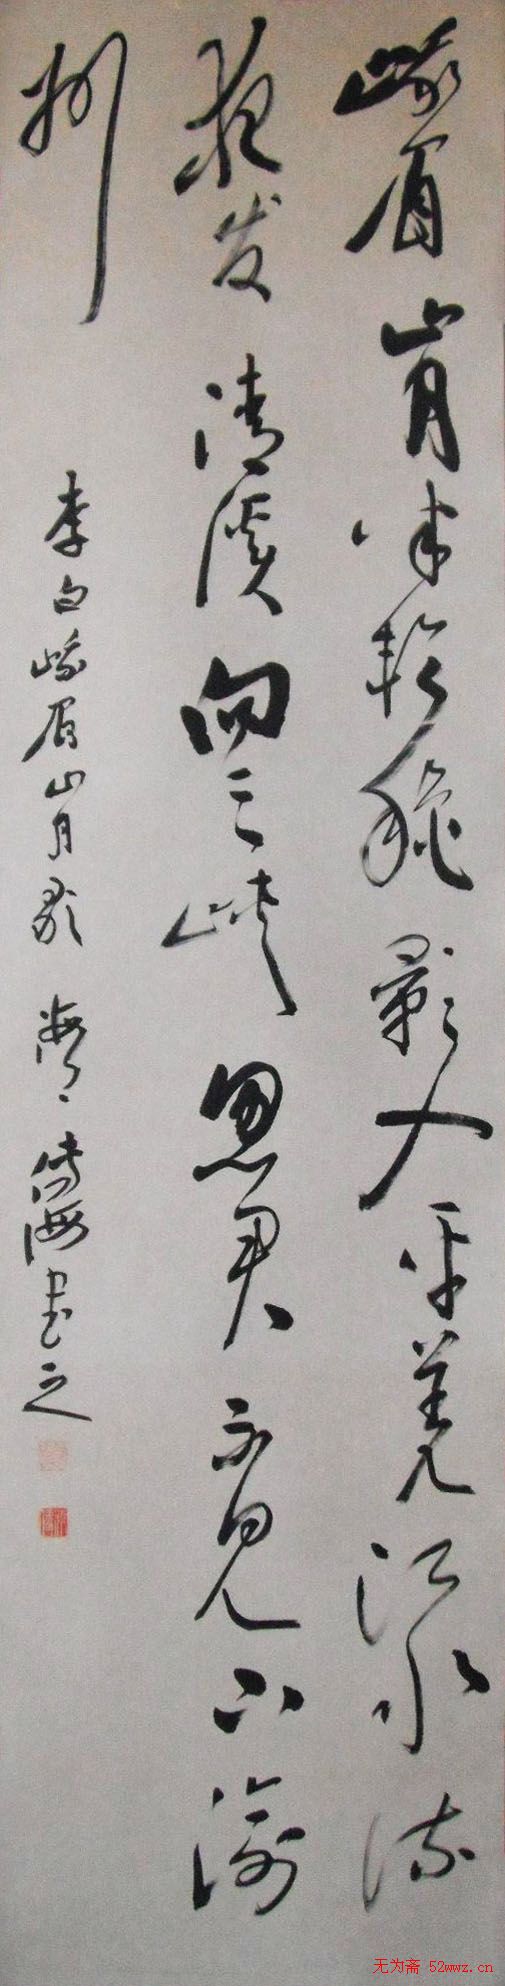 峨眉山月半轮秋影入平羌江水流
夜发清溪向三峡思君不见下渝
州
李白峨眉山月歌 书之
无为斋 52wwz.cn